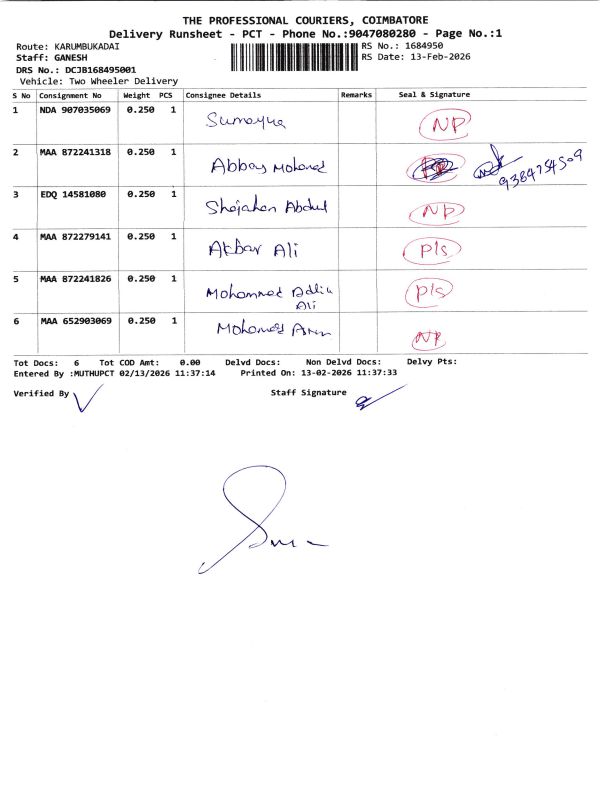 THE PROFESSIONAL COURIERS, COIMBATORE
Delivery Runsheet - PCT - Phone No.:9047080280 - Page No.:1
Route: KARUMBUKADAI
RS No.: 1684950
Staff: GANESH
RS Date: 13-Feb-2026
DRS No.: DCJB168495001
Vehicle: Two Wheeler Delivery
S No Consignment No Weight PCS Consignee Details Remarks Seal & Signature
1 NDA 907035069 0.250 1 Sumayya NP
2 MAA 872241318 0.250 1 Abbas Mohamed 9384754509
3 EDQ 14581080 0.250 1 Shajahan Abdul NP
4 MAA 872279141 0.250 1 Akbar Ali Pls
5 MAA 872241826 0.250 1 Mohammed Ali Pls
6 MAA 652903069 0.250 1 Mohamed NP
Tot Docs: 6 Tot COD Amt: 0.00 Delvd Docs: Non Delvd Docs: Delvy Pts:
Entered By :MUTHUPCT 02/13/2026 11:37:14 Printed On: 13-02-2026 11:37:33
Verified By Staff Signature